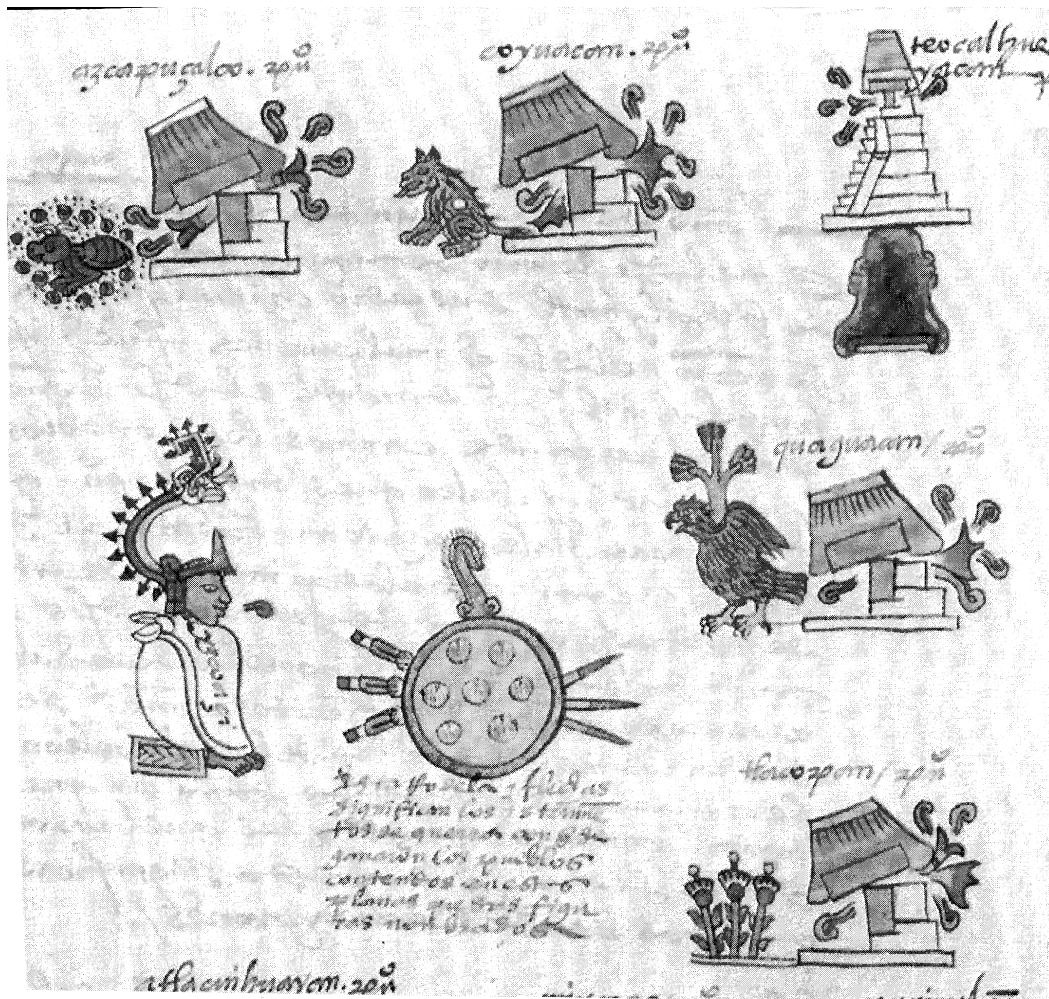 azcapuçalco. puº
coyuacan. puº
teocalhue
yacan
quaguacan / puº
tlacopan / puº
ytzcoaçi
esta rodela y flechas
significan los ystrume
tos de guerra con q̃ se
ganaron los pueblos
contenidos en estas
planas por sus figu
ras nonbrados
atlacuihuayan. puº